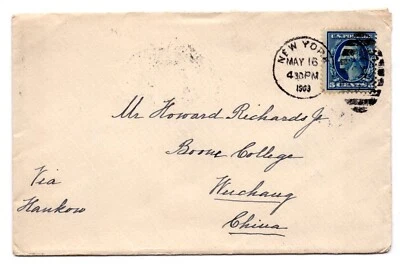 NEW YORK
MAY 16
430PM
1903
5 CENTS
Mr Howard Richards Jr.
Boone College
Wuchang
China
Via
Hankow